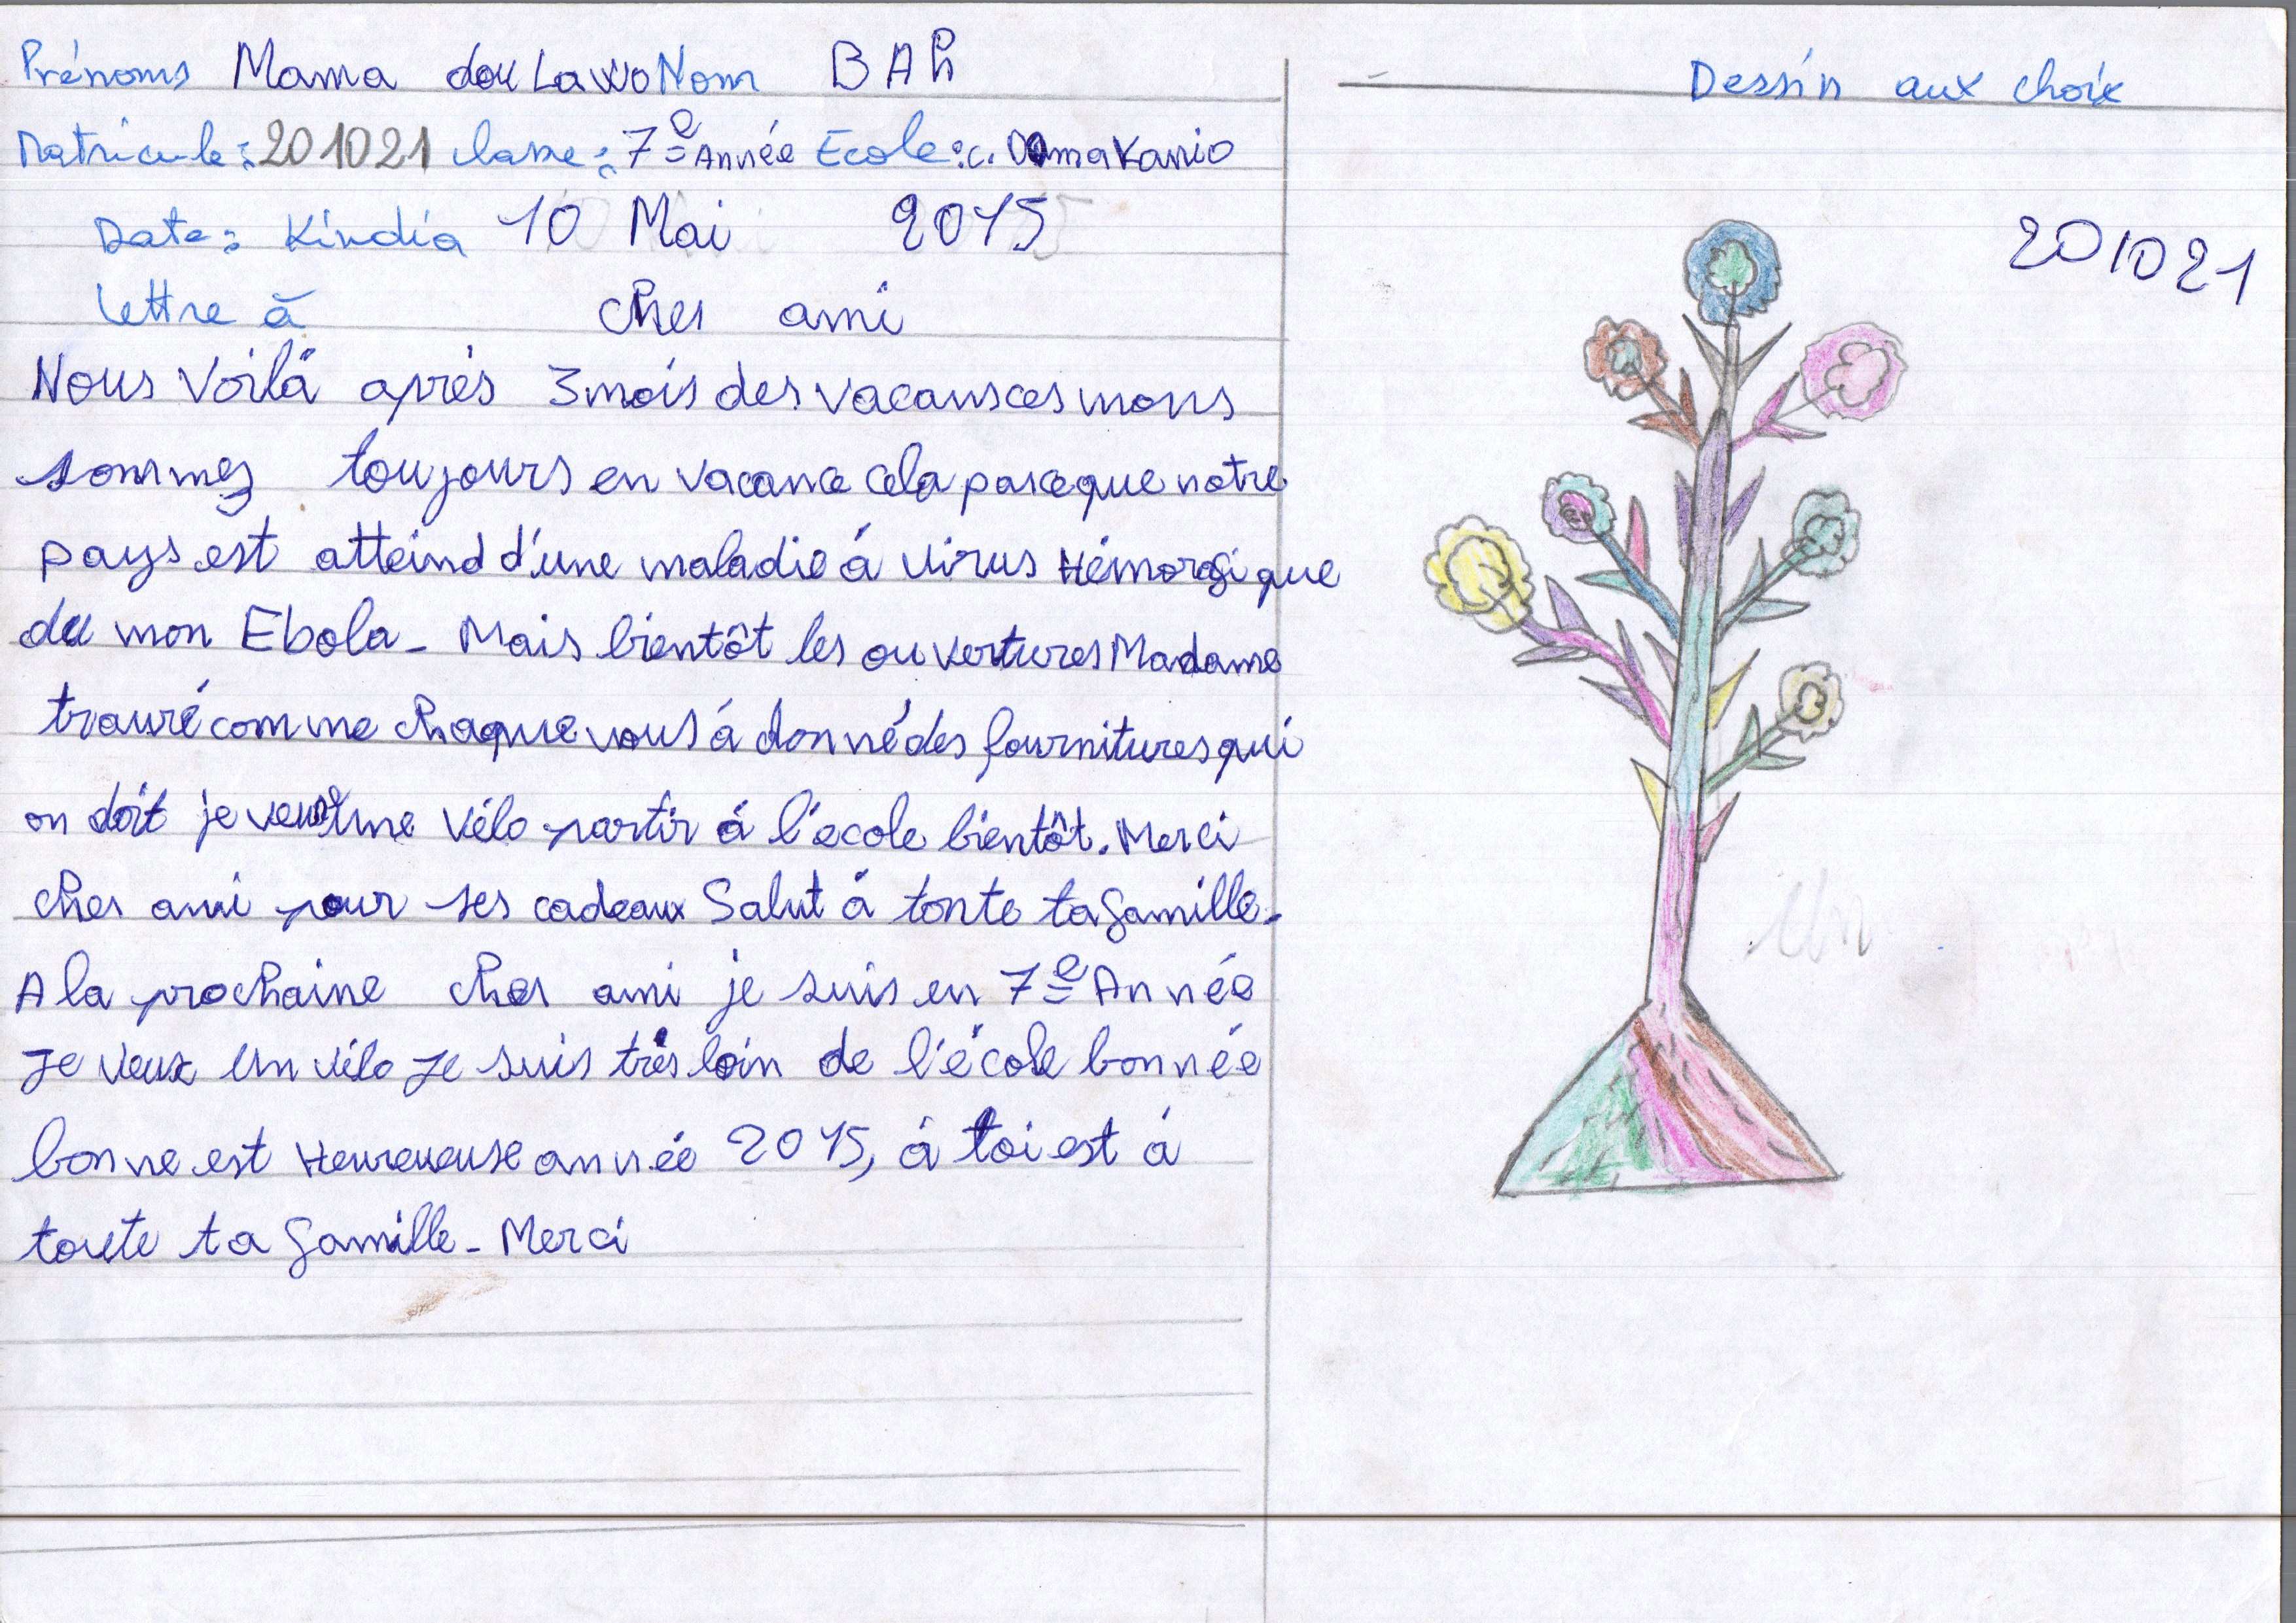 Prénoms Mama dou Lawo Nom BAh
Matricule : 201021 classe : 7e Année Ecole : c. Damakanio
Date : Kindia 10 Mai 2015
lettre à cher ami
Nous Voilà après 3 mois des vacansces mons
sommes toujours en vacance cela parceque notre
pays est atteind d'une maladie á virus Hémorgique
du mon Ebola - Mais bientôt les ouvertures Madame
trauré comme chaque vous á donné des fournitures qui
on doit je veux une vélo partir á l'école bientôt. Merci
cher ami pour ses cadeaux Salut á toute ta famille -
A la prochaine cher ami je suis en 7e Année
Je veux un vélo je suis très loin de l'école bonnée
bonne est Heureueuse année 2015, á toi est á
toute ta famille - Merci
Dessin aux choix
201021